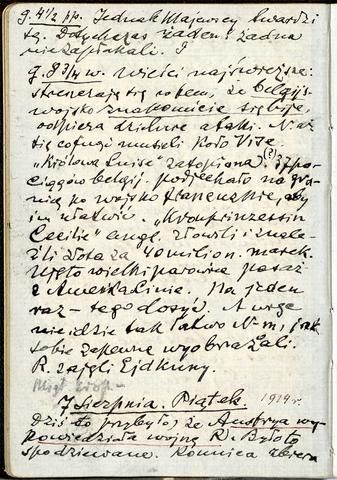 g. 4 1/2 pp. Jednak Majewscy twardzi
są. Dotychczas żaden i żadna
nie zapłakali. I
g. 8 3/4 w. Wieści najświeższe:
streszczają się w tem, że belgijs.
wojsko znakomicie się bije,
odpiera dzielnie ataki. N-cy
się cofnąć musieli koło Vise.
„Królowa Luise" zatopiona) (?) 37 po-
ciągów belgij. podjechało na gra-
nicę po wojsko francuskie, aby
im ułatwić. „Kronprinzessin
Cecilie" angl. złowili i znale-
źli złota za 40 milion. marek.
Wzięto wielki parowiec pasaż.
z Amerika Linie. Na jeden
raz – tego dosyć. A więc
nie idzie tak łatwo N-m, jak
sobie zapewne wyobrażali.
R. zajęli Ejdkuny.
7 Sierpnia. Piątek. 1914 r.
Dziś to przybyło, że Austrya wy-
powiedziała wojnę R. Było to
spodziewane. Konnica